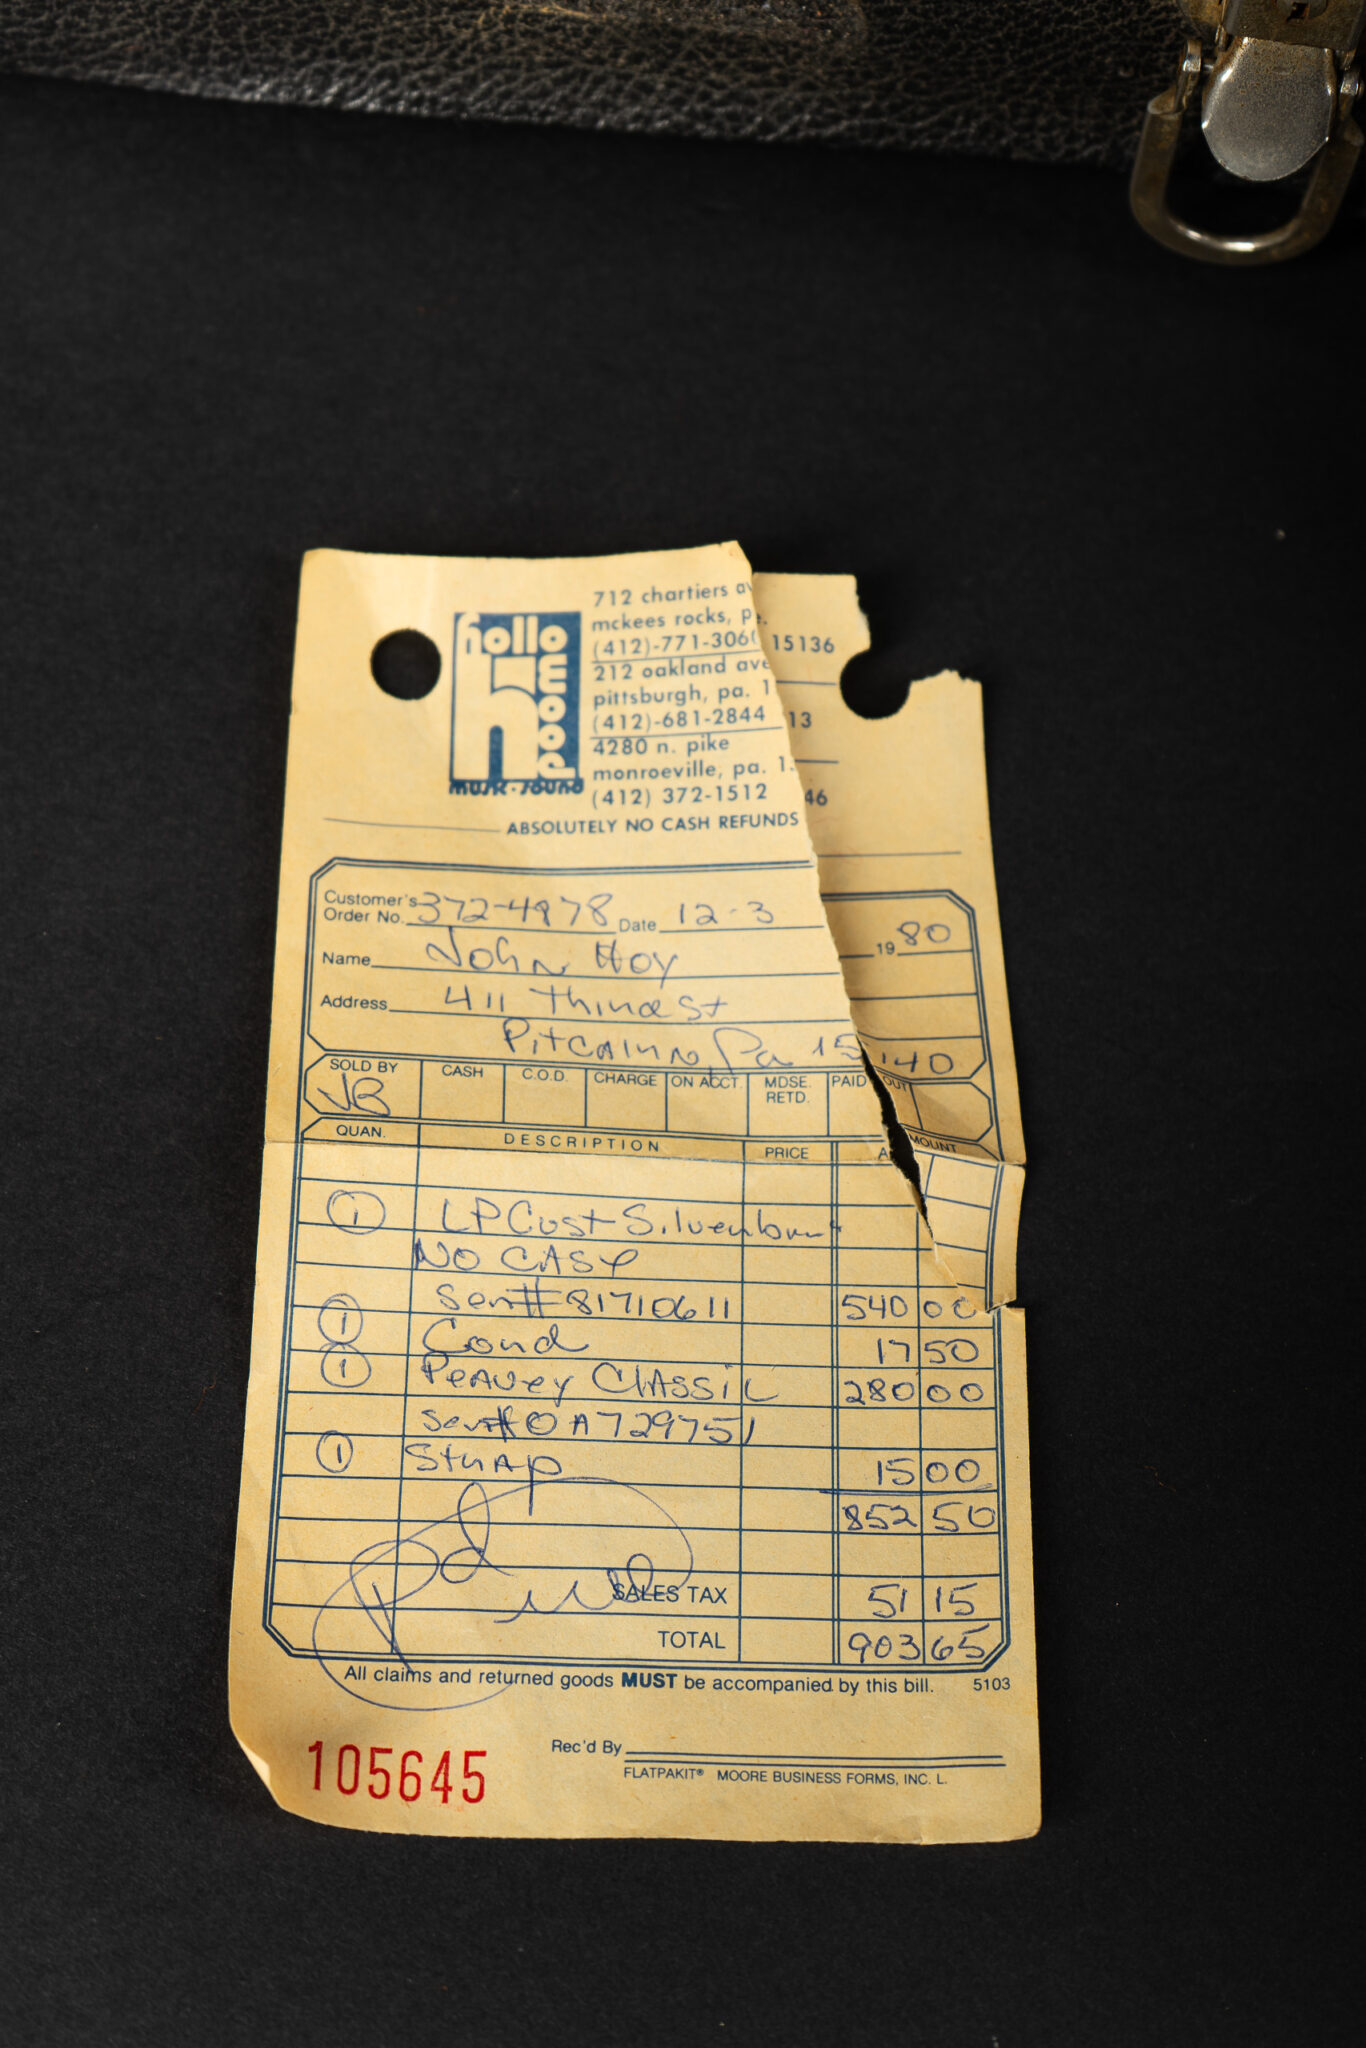 hollowood
music·sound
712 chartiers av
mckees rocks, pa. 15136
(412)-771-3060
212 oakland ave
pittsburgh, pa. 1 13
(412)-681-2844
4280 n. pike
monroeville, pa. 1 46
(412) 372-1512
ABSOLUTELY NO CASH REFUNDS
Customer's Order No. 372-4978 Date 12-3 1980
Name John Hoy
Address 411 Third St
Pitcairn, Pa 15140
SOLD BY CASH C.O.D. CHARGE ON ACCT. MDSE. RETD. PAID OUT
JB
QUAN. DESCRIPTION PRICE AMOUNT
1 LP Cust Silverburst
NO CASE
Ser# 81710611 540 00
1 Cord 17 50
1 Peavey Classic 280 00
Ser# 0A729751
1 Strap 15 00
852 50
Pd
SALES TAX 51 15
TOTAL 903 65
All claims and returned goods MUST be accompanied by this bill. 5103
105645
Rec'd By
FLATPAKIT® MOORE BUSINESS FORMS, INC. L.